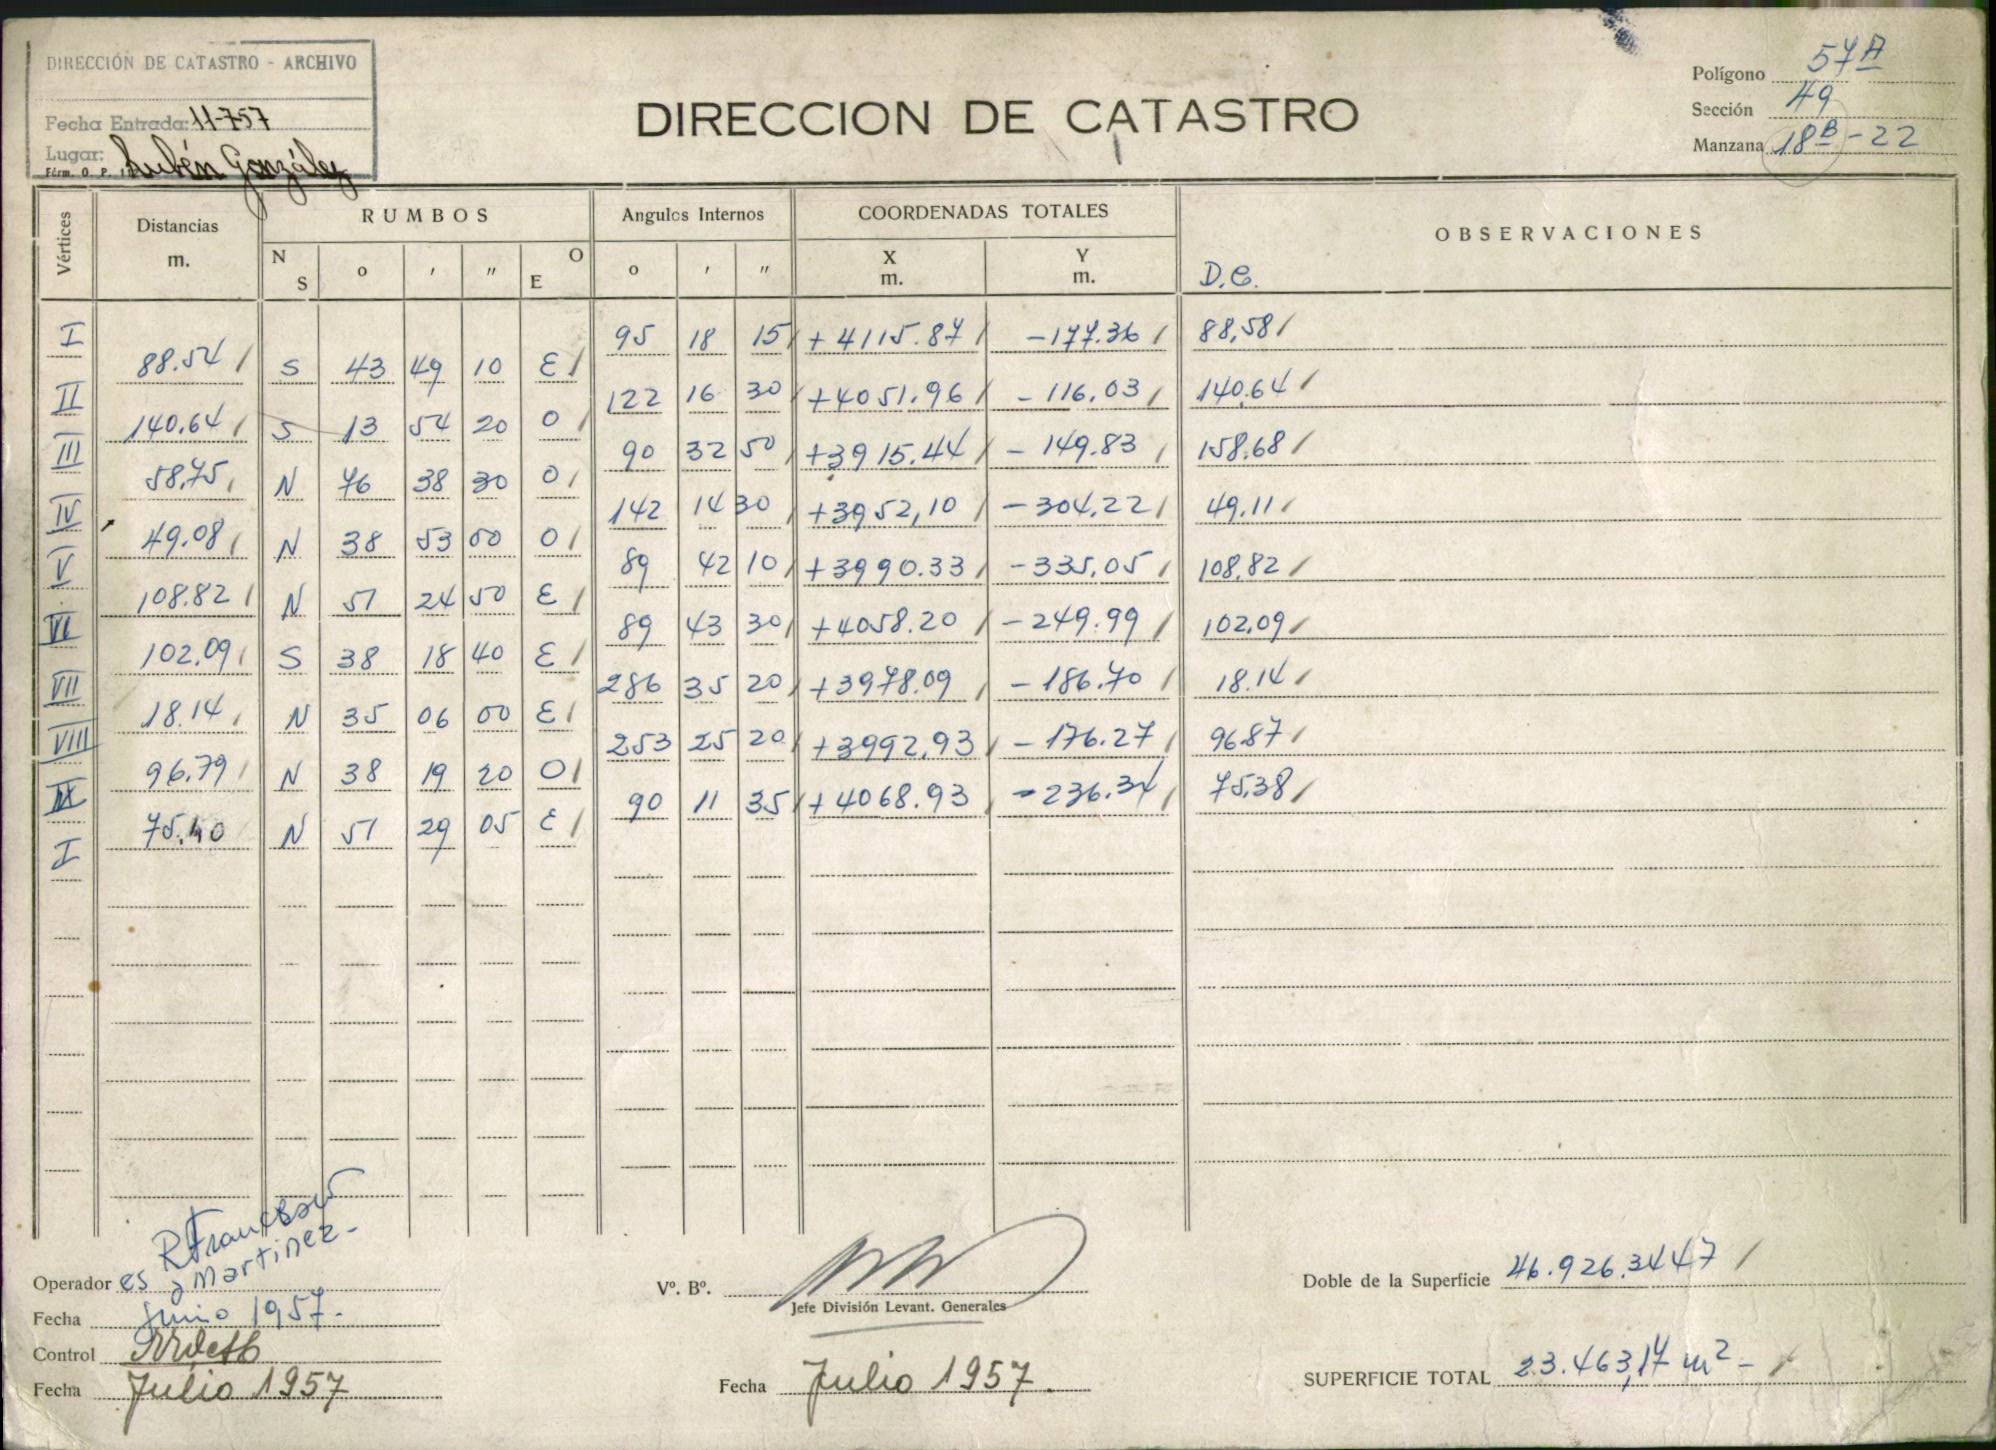 DIRECCIÓN DE CATASTRO - ARCHIVO
Fecha Entrada: 11-7-57
Lugar:
Rubén González
Fórm. O. P.
DIRECCION DE CATASTRO
Polígono 57A
Sección 49
Manzana 18B - 22
Vértices Distancias m. RUMBOS N S o ' " E O Angulos Internos o ' " COORDENADAS TOTALES X m. Y m. OBSERVACIONES
D.C.
I 95 18 15 +4115.87 -177.36 88,58
88.54 S 43 49 10 E
II 122 16 30 +4051.96 -116.03 140.64
140.64 S 13 54 20 O
III 90 32 50 +3915.44 -149.83 158.68
58,75 N 76 38 30 O
IV 142 14 30 +3952,10 -304.22 49.11
49.08 N 38 53 00 O
V 89 42 10 +3990.33 -335,05 108,82
108.82 N 51 24 50 E
VI 89 43 30 +4058.20 -249.99 102,09
102.09 S 38 18 40 E
VII 286 35 20 +3978.09 -186.70 18.14
18.14 N 35 06 00 E
VIII 253 25 20 +3992,93 -176.27 96.87
96.79 N 38 19 20 O
IX 90 11 35 +4068.93 -236.34 75,38
75.40 N 51 29 05 E
I
Operador es R Francisco
y Martinez-
Fecha Junio 1957.
Control
Fecha Julio 1957
Vº. Bº.
Jefe División Levant. Generales
Fecha Julio 1957.
Doble de la Superficie 46.926.3447
SUPERFICIE TOTAL 23.463,17 m2-